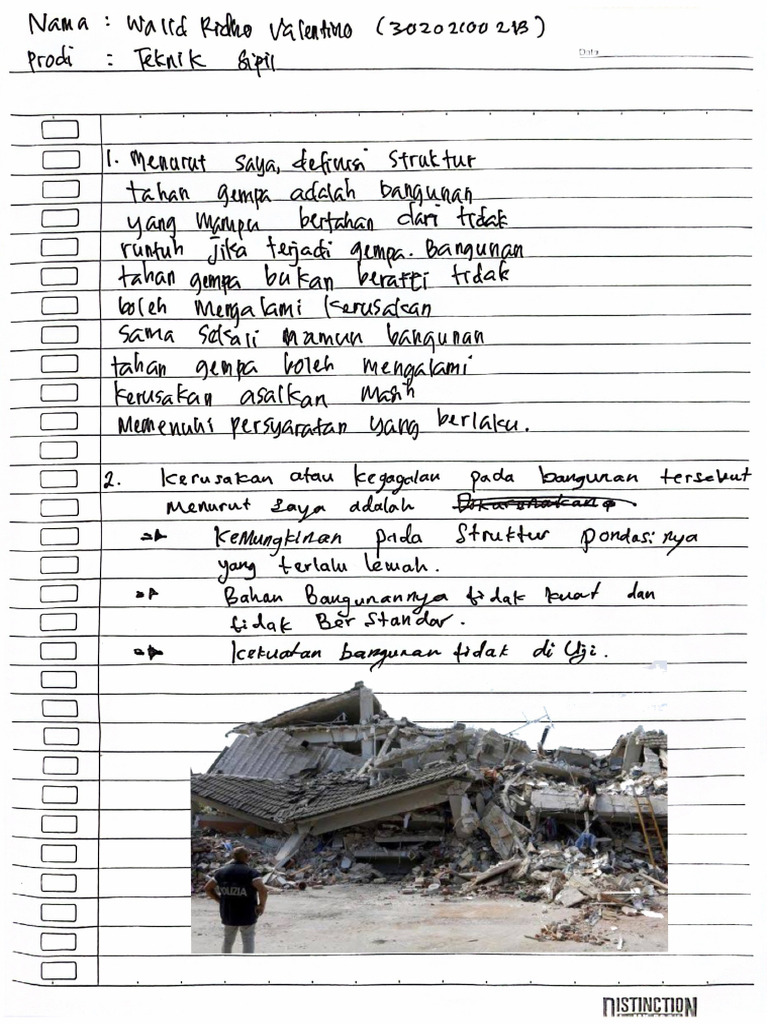 Nama : Walid Ridho Valentino (30202100213)
Prodi : Teknik Sipil
Date
1. Menurut saya, definisi struktur
tahan gempa adalah bangunan
yang mampu bertahan dari tidak
runtuh jika terjadi gempa. Bangunan
tahan gempa bukan berarti tidak
boleh mengalami kerusakan
sama sekali namun bangunan
tahan gempa boleh mengalami
kerusakan asalkan masih
memenuhi persyaratan yang berlaku.
2. Kerusakan atau kegagalan pada bangunan tersebut
menurut saya adalah
Kemungkinan pada struktur pondasinya
yang terlalu lemah.
Bahan Bangunannya tidak kuat dan
tidak Ber Standar.
Kekuatan bangunan tidak di Uji.
POLIZIA
DISTINCTION